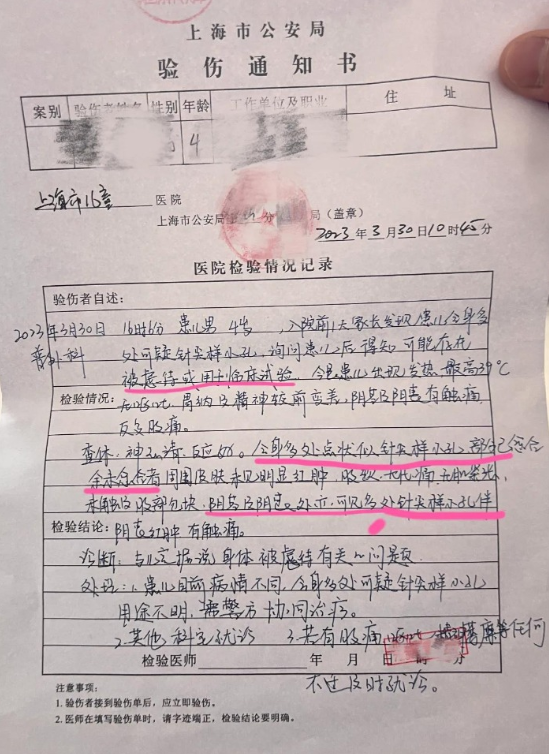 上海市公安局
验伤通知书
案别 验伤者姓名 性别 年龄 工作单位及职业 住 址
4
上海市儿童 医院
上海市公安局 分 局（盖章）
2023年3月30日10时45分
医院检验情况记录
验伤者自述：
2023年3月30日 16时6分 患儿男 4岁 ，入院前1天家长发现患儿全身多
普外科 处可疑针尖样小孔，询问患儿后得知可能存在
被虐待或用于临床试验。今日患儿出现发热，最高39℃
检验情况： 无呕吐 胃纳及精神较前变差，阴茎及阴囊有触痛
反复腹痛。
查体：神志清 反应 全身多处点状似针尖样小孔 部分已愈合
余未愈合者周围皮肤未见明显红肿 腹软 无压痛
未触及腹部包块，阴茎及阴囊 处亦可见多处针尖样小孔伴
检验结论： 阴囊红肿 有触痛。
诊断：与 据说身体被虐待有关的问题
处理：1.患儿目前病情不同，全身多处可疑针尖样小孔
用途不明，需警方协同治疗。
2.其他科室就诊 3.若有腹痛 等任何
检验医师 年 月 日 时 分
不适及时就诊。
注意事项：
1. 验伤者接到验伤单后，应立即验伤。
2. 医师在填写验伤单时，请字迹端正，检验结论要明确。